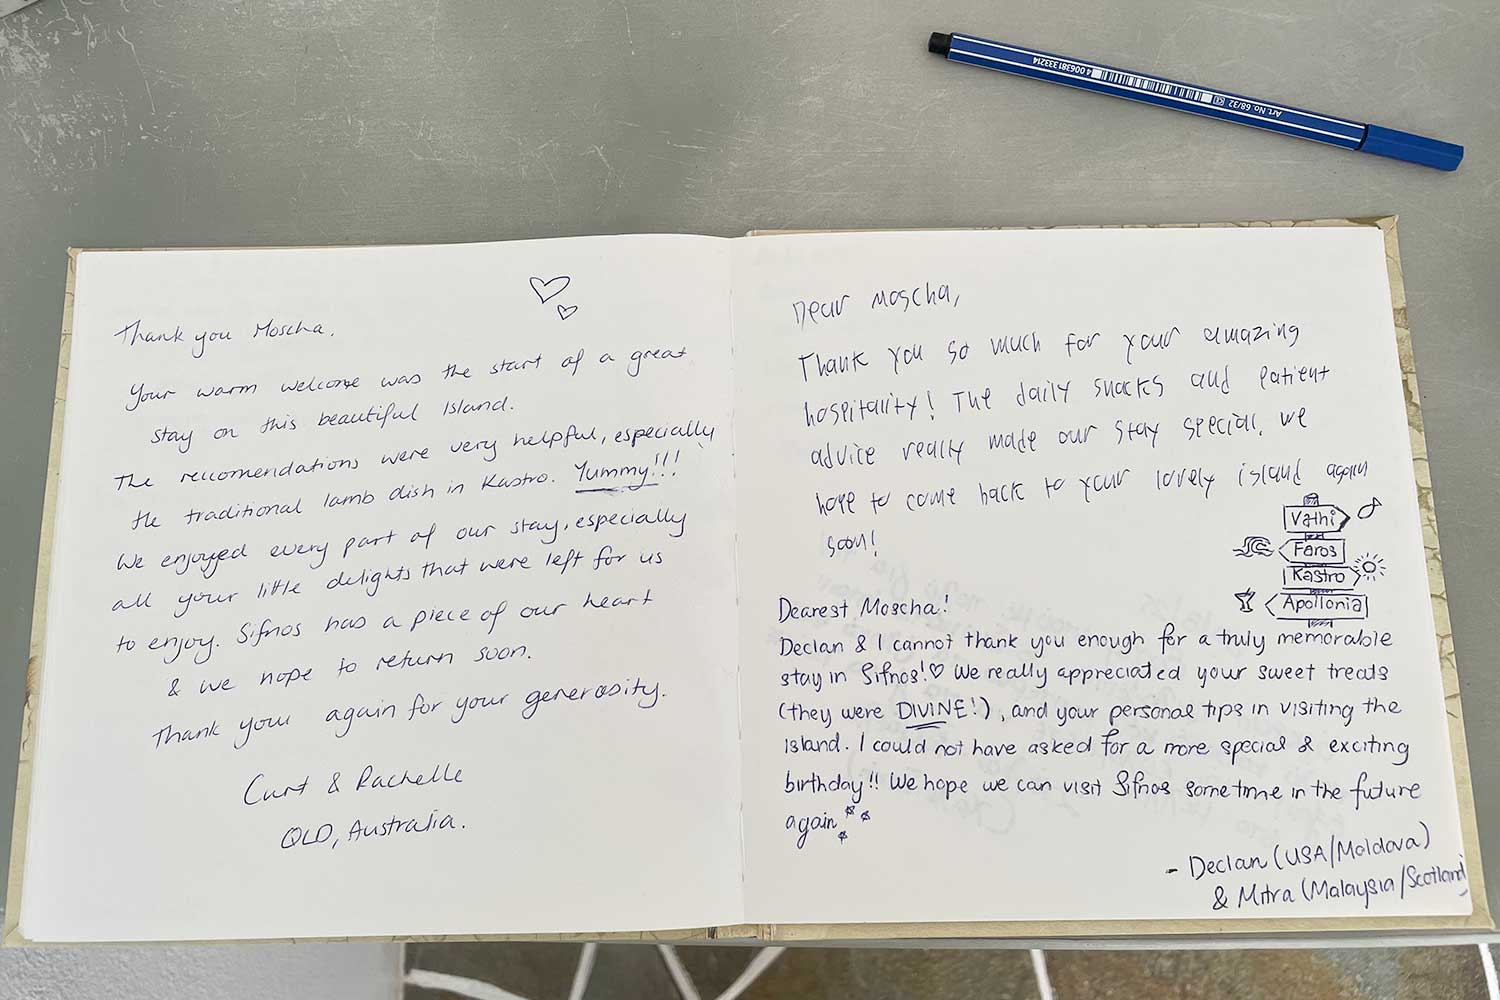 Thank you Moscha.
Your warm welcome was the start of a great
stay on this beautiful Island.
The reccomendations were very helpful, especially
the traditional lamb dish in Kastro. Yummy!!!
We enjoyed every part of our stay, especially
all your little delights that were left for us
to enjoy. Sifnos has a piece of our heart
& we hope to return soon.
Thank your again for your generosity.
Curt & Rachelle
QLD, Australia.
Dear Moscha,
Thank you so much for your amazing
hospitality! The daily snacks and patient
advice really made our stay special. We
hope to come back to your lovely island again
soon!
Vathi
Faros
Kastro
Apollonia
Dearest Moscha!
Declan & I cannot thank you enough for a truly memorable
stay in Sifnos!♡ We really appreciated your sweet treats
(they were DIVINE!), and your personal tips in visiting the
island. I could not have asked for a more special & exciting
birthday!! We hope we can visit Sifnos sometime in the future
again
- Declan (USA/Moldova)
& Mitra (Malaysia/Scotland)
Art. No. 68/32
4 006381 333214